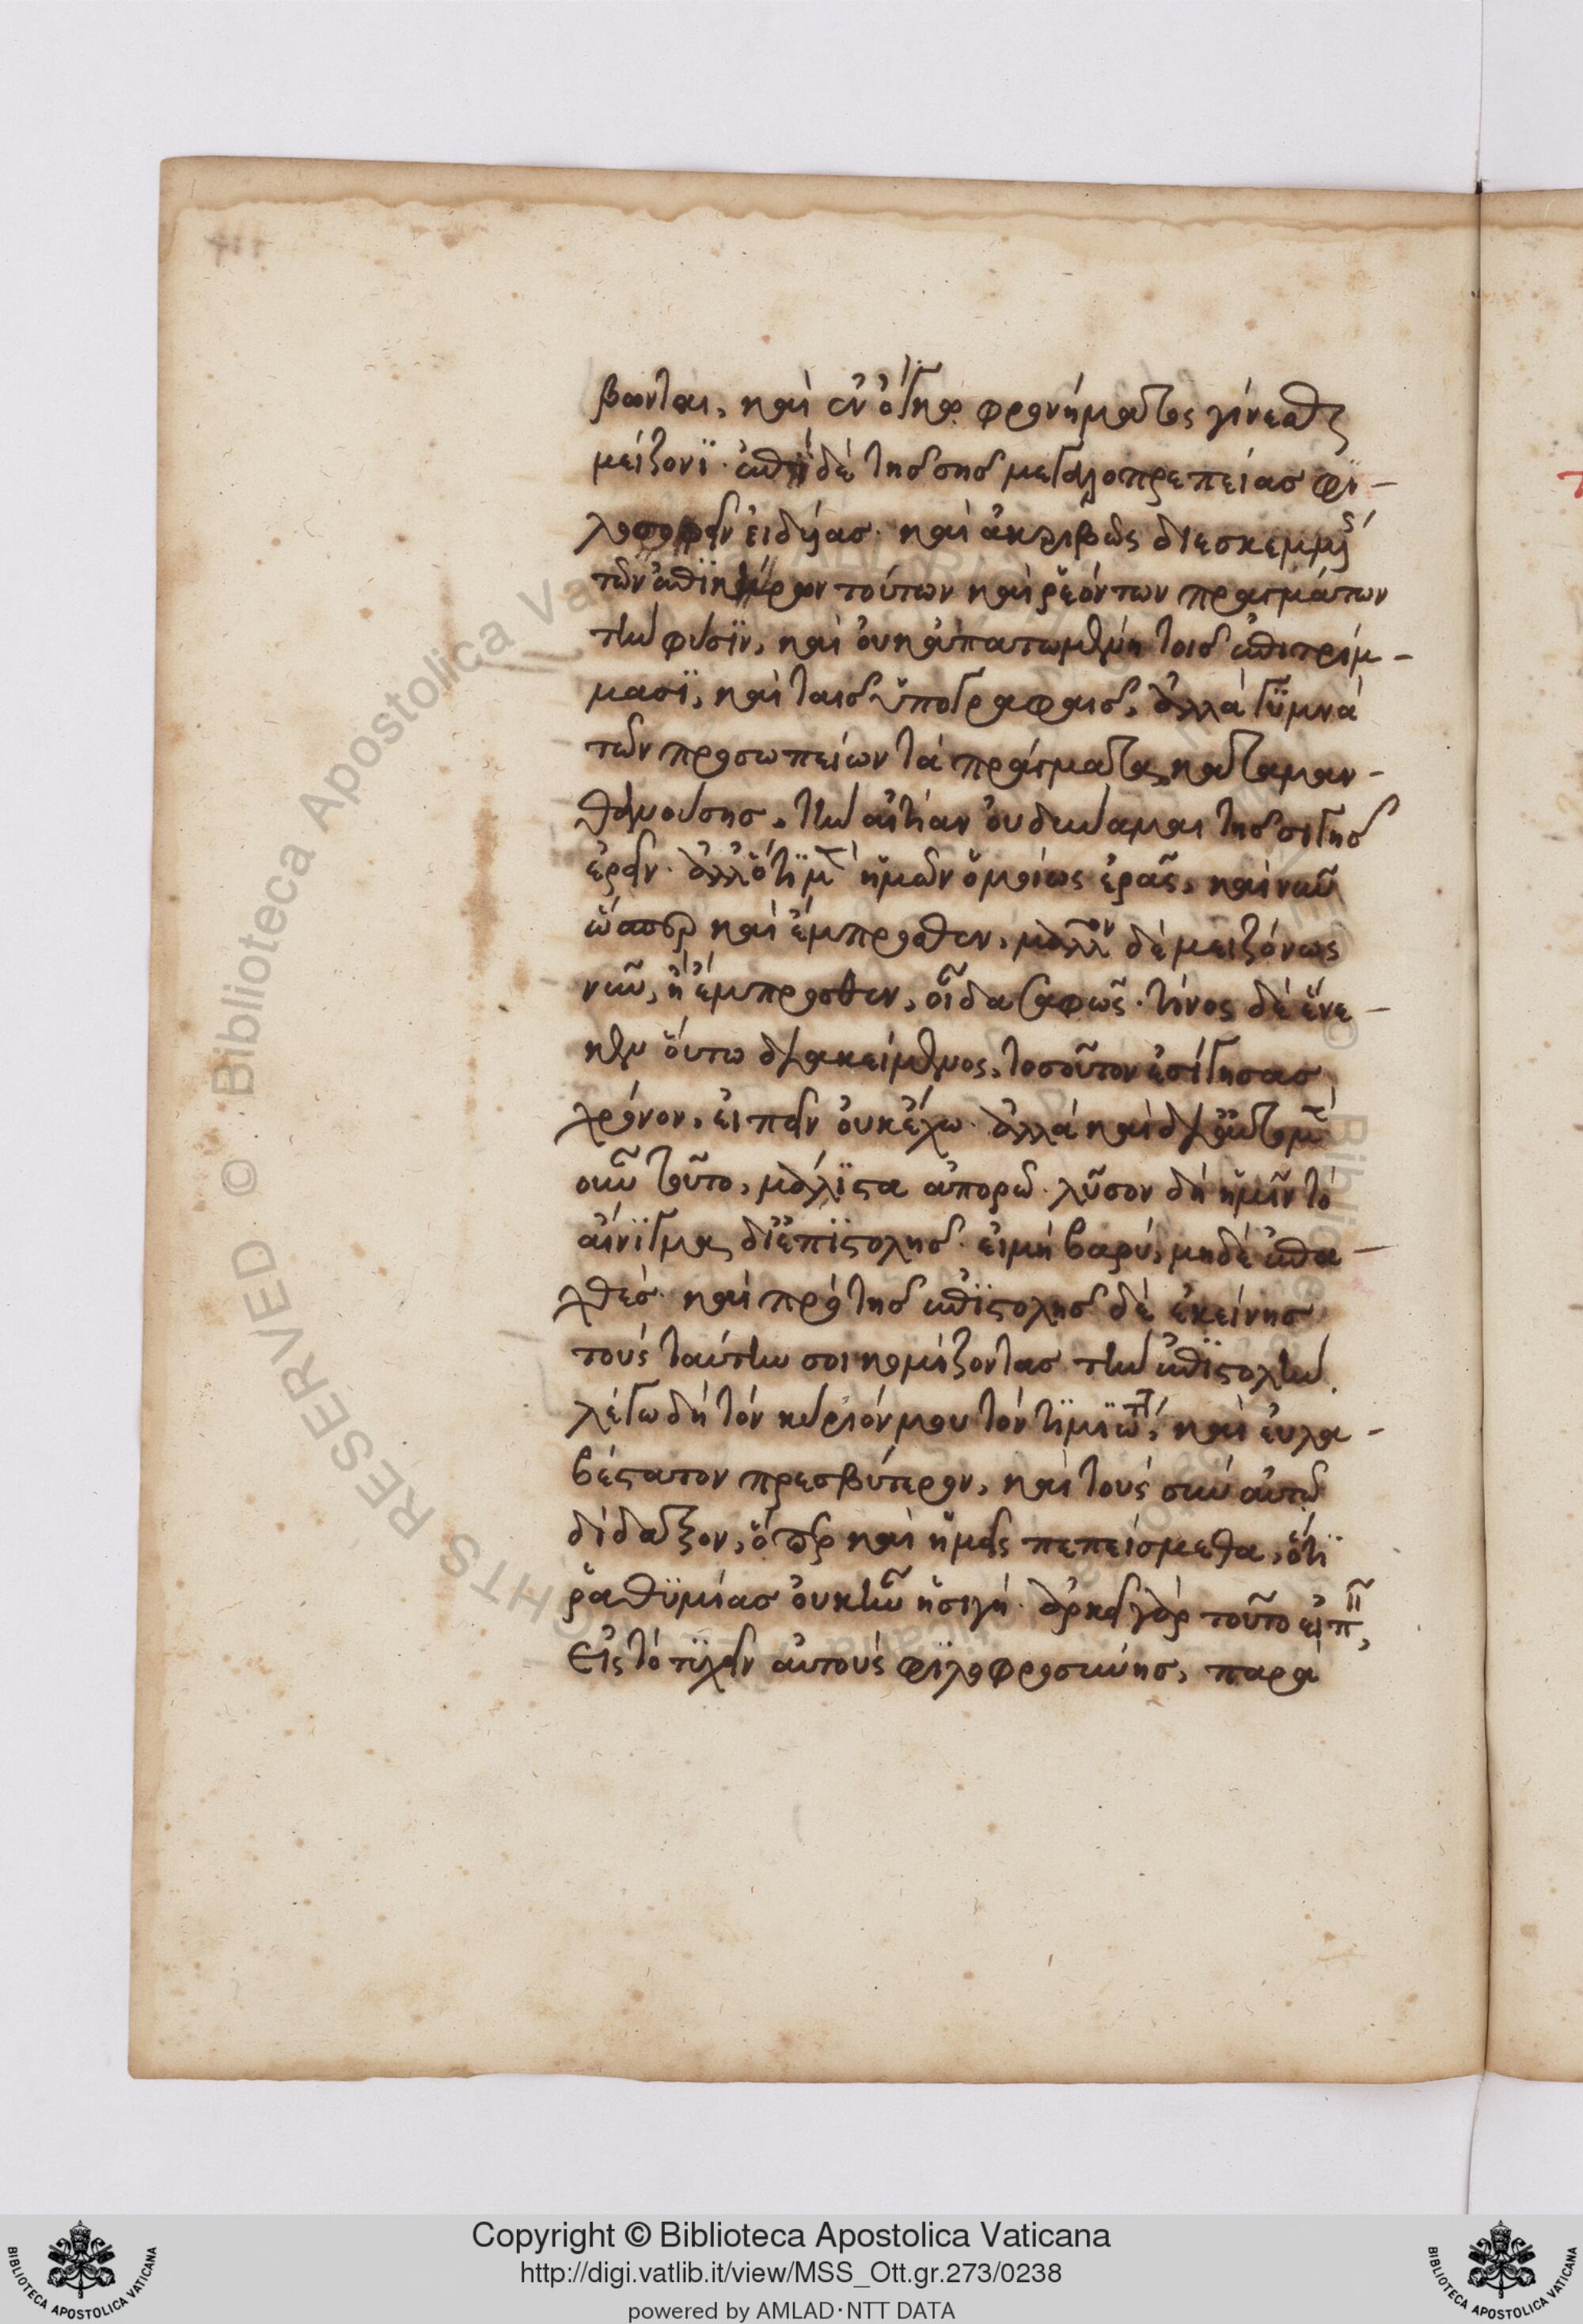 βωνται, καὶ ἐν ὄγκῳ φρονήματος γίνεσθαι
μείζονϊ· ἐπὶ δὲ τῆς σῆς μεγαλοπρεπείας φϊ-
λοσοφεῖν εἰδυίας· καὶ ἀκριβῶς διεσκεμμένης
τῶν ἐπϊκήρων τούτων καὶ ῥεόντων πραγμάτων
τὴν φύσϊν, καὶ οὐκ ἀπατωμένη τοῖς ἐπιτρίμ-
μασϊ, καὶ ταῖς ὑπογραφαῖς, ἀλλὰ γϋμνὰ
τῶν προσωπείων τὰ πράγματα καταμαν-
θανούσης, τὴν αἰτίαν οὐ δύναμαι τῆς σιγῆς
εὑρεῖν· ἀλλ' ὅτϊ μὲν ἡμῶν ὁμοίως ἐρᾷς, καὶ νῦν
ὥσπερ καὶ ἔμπροσθεν, μᾶλλον δὲ μειζόνως
νῦν, ἢ ἔμπροσθεν, οἶδα σαφῶς· τίνος δὲ ἕνε-
κεν οὕτω διακείμενος, τοσοῦτον ἐσίγησας
χρόνον, εἰπεῖν οὐκ ἔχω· ἀλλὰ καὶ δι' αὐτὸ μὲν
οὖν τοῦτο, μάλϊστα ἀπορῶ· λῦσον δὴ ἡμῖν τὸ
αἴνϊγμα δϊ' ἐπϊστολῆς· εἰ μὴ βαρύ, μηδὲ ἐπα-
χθές· καὶ πρὸ τῆς ἐπϊστολῆς δὲ ἐκείνης
τοὺς ταύτην σοι κομίζοντας τὴν ἐπϊστολὴν
λέγω δὴ τὸν κύριόν μου τὸν τϊμϊώτατον, καὶ εὐλα-
βέστατον πρεσβύτερον, καὶ τοὺς σὺν αὐτῷ
δίδαξον, ὅπερ καὶ ἡμεῖς πεπείσμεθα, ὅτϊ
ῥαθϋμίας οὐκ ἦν ἡ σιγή· ἀρκεῖ γὰρ τοῦτο εἰπεῖν,
εἰς τὸ τϋχεῖν αὐτοὺς φϊλοφροσύνης, παρὰ
Copyright © Biblioteca Apostolica Vaticana
http://digi.vatlib.it/view/MSS_Ott.gr.273/0238
powered by AMLAD·NTT DATA